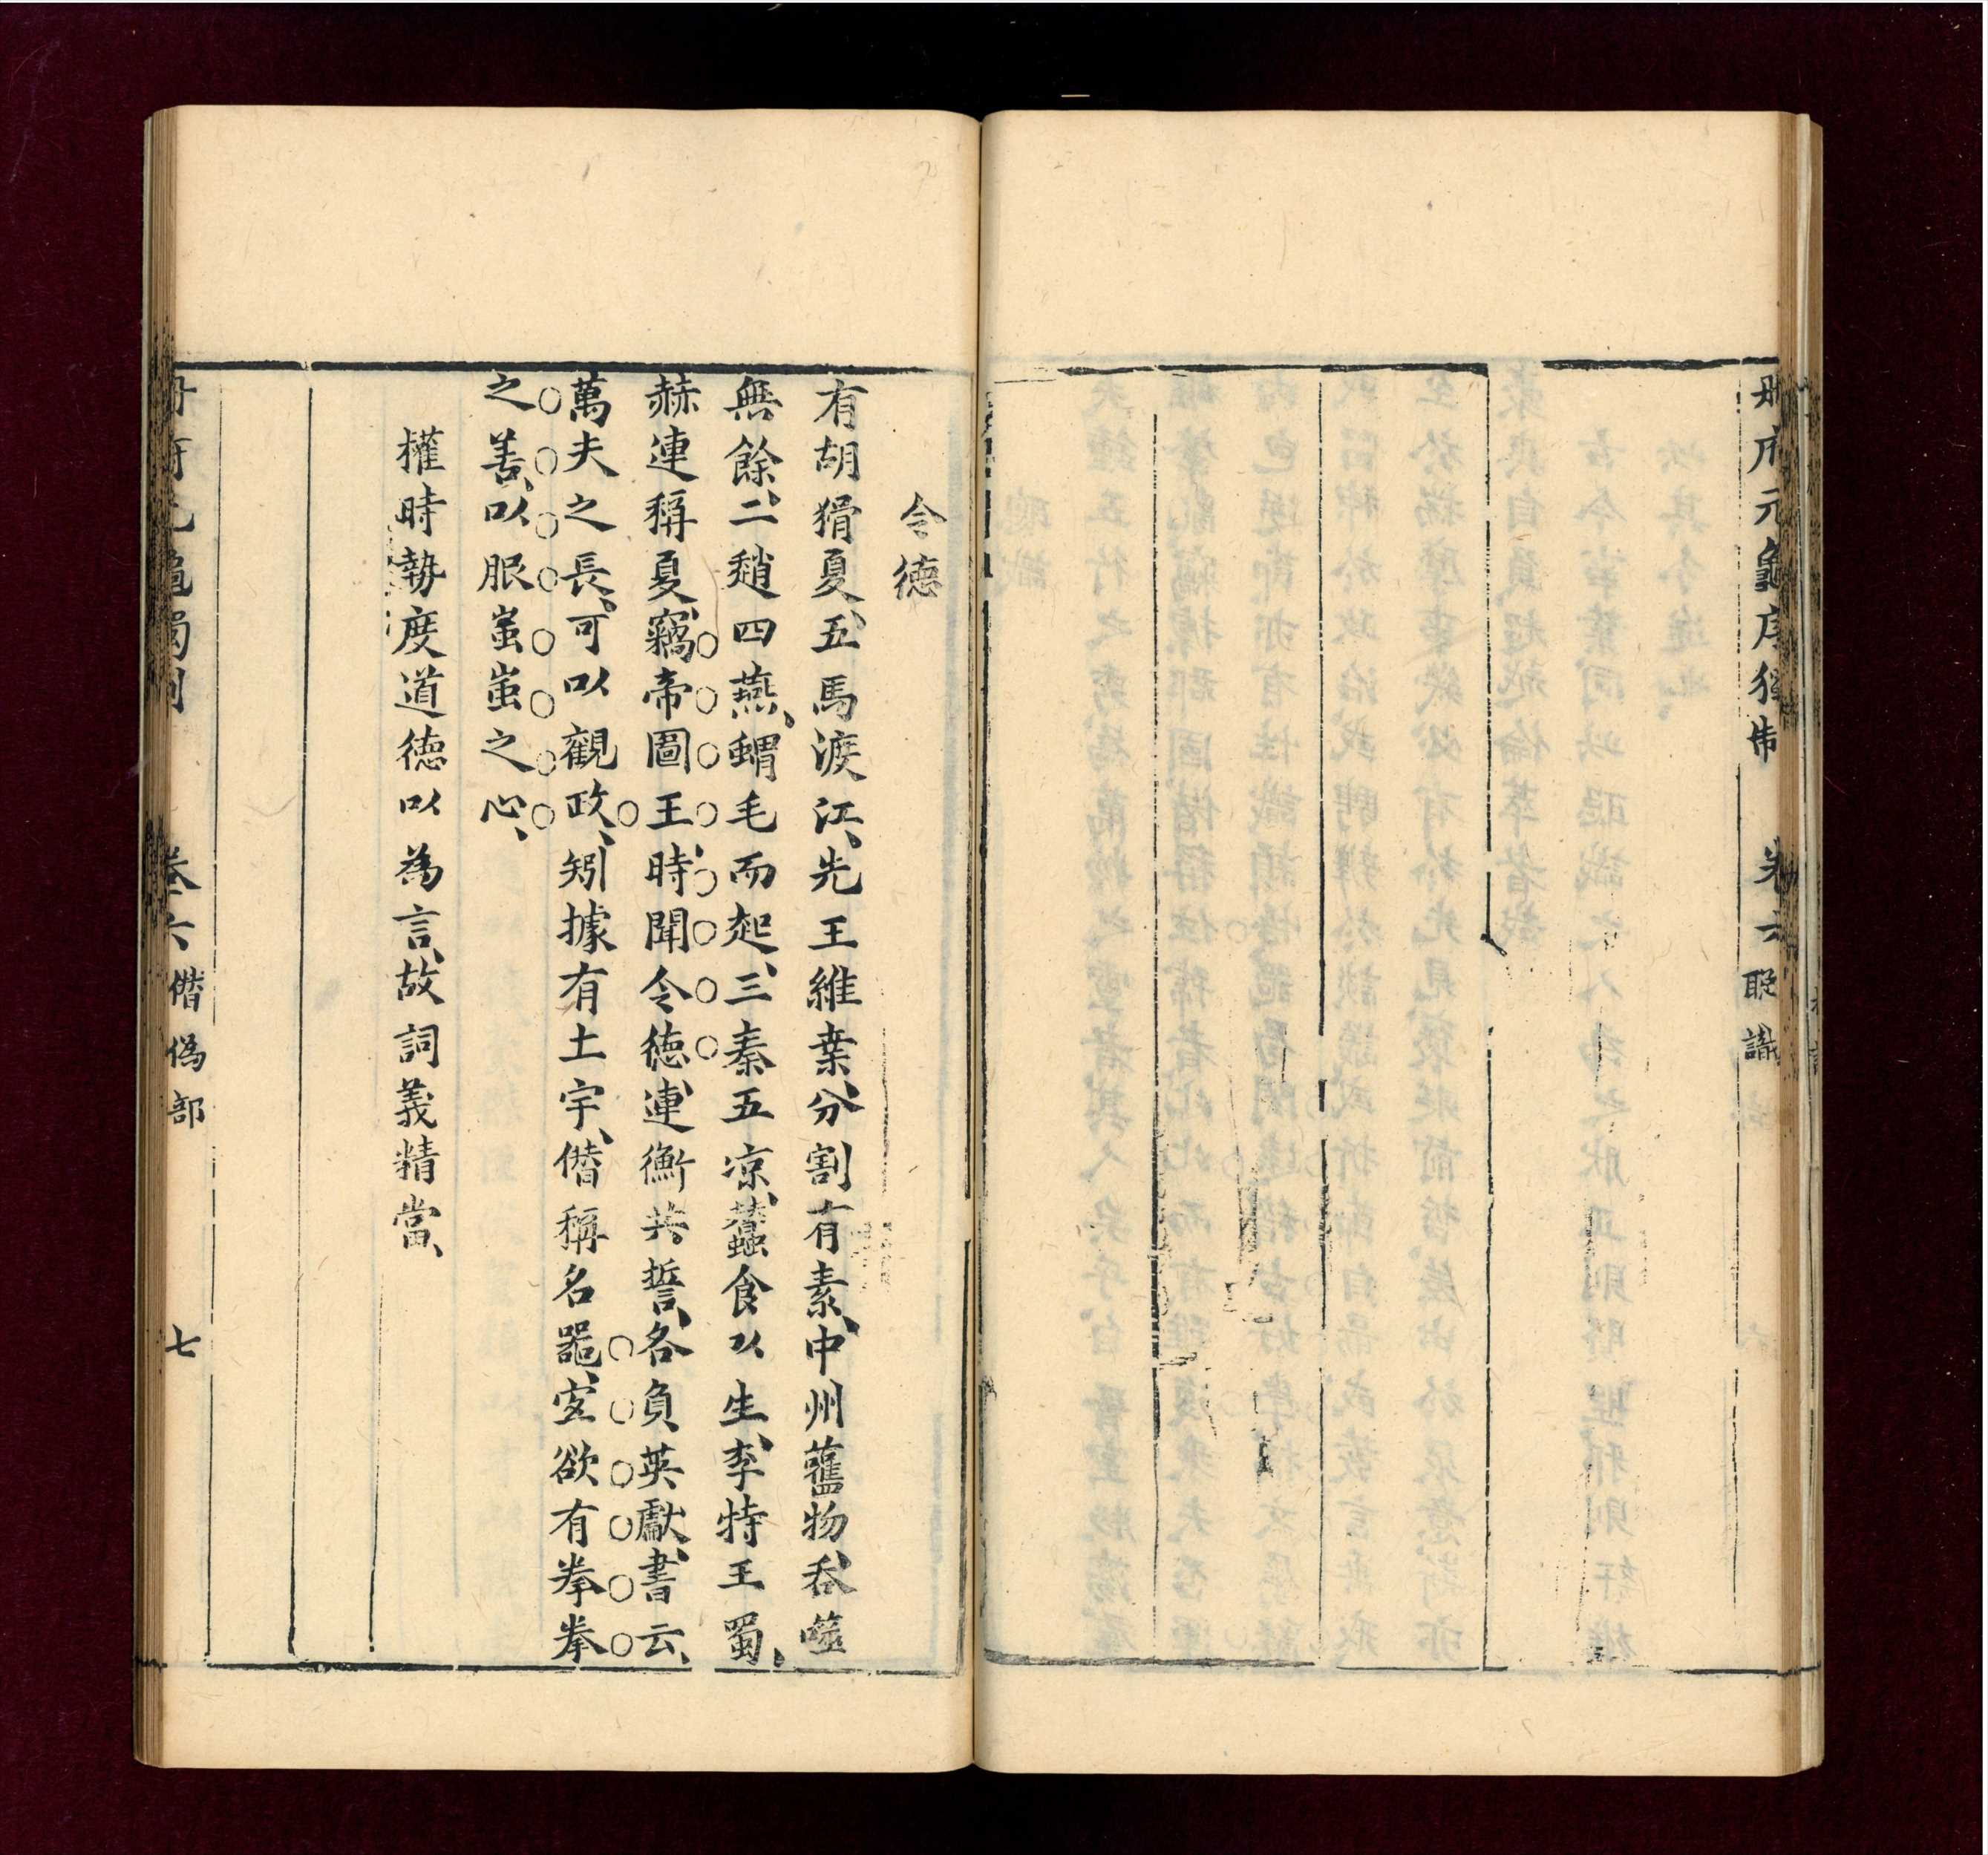 册府元龜序獨制 卷六 聰識
令德
有胡猾夏、五馬渡江、先王維葉、分割有素、中州舊物、吞噬
無餘、二趙四燕、蝟毛而起、三秦五凉、蠶食以生、李特王蜀、
赫連稱夏、竊帝圖王、時聞令德、連衡共誓、各負英猷、書云、
萬夫之長、可以觀政、矧據有土宇、僭稱名器、寔欲有拳拳
之善、以服蚩蚩之心、
權時勢度道德以為言、故詞義精當、
卷六 僭偽部 七